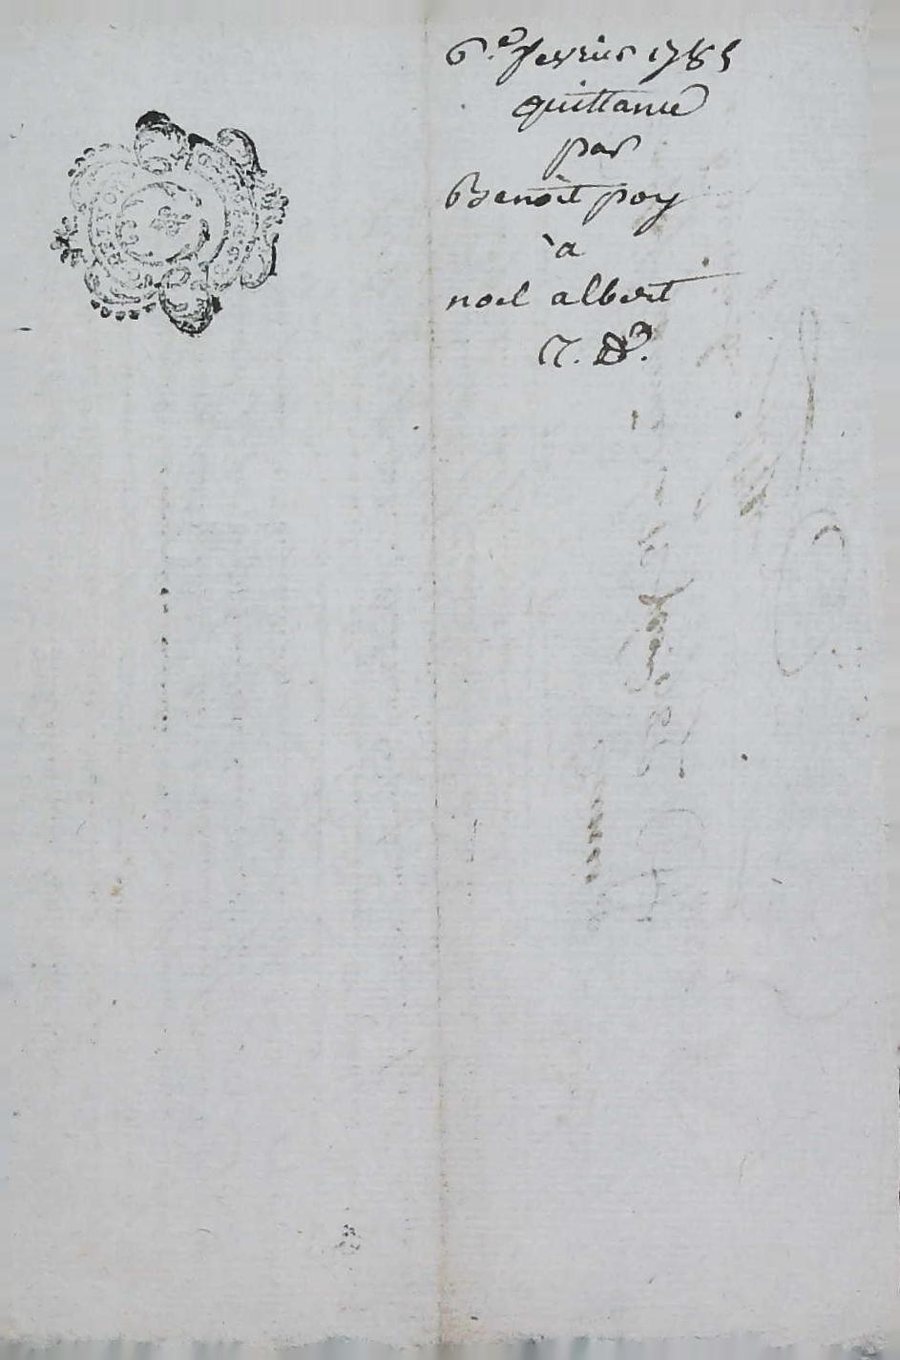 6.e fevrier 1785
quittance
par
Benoît poy
à
noel albert